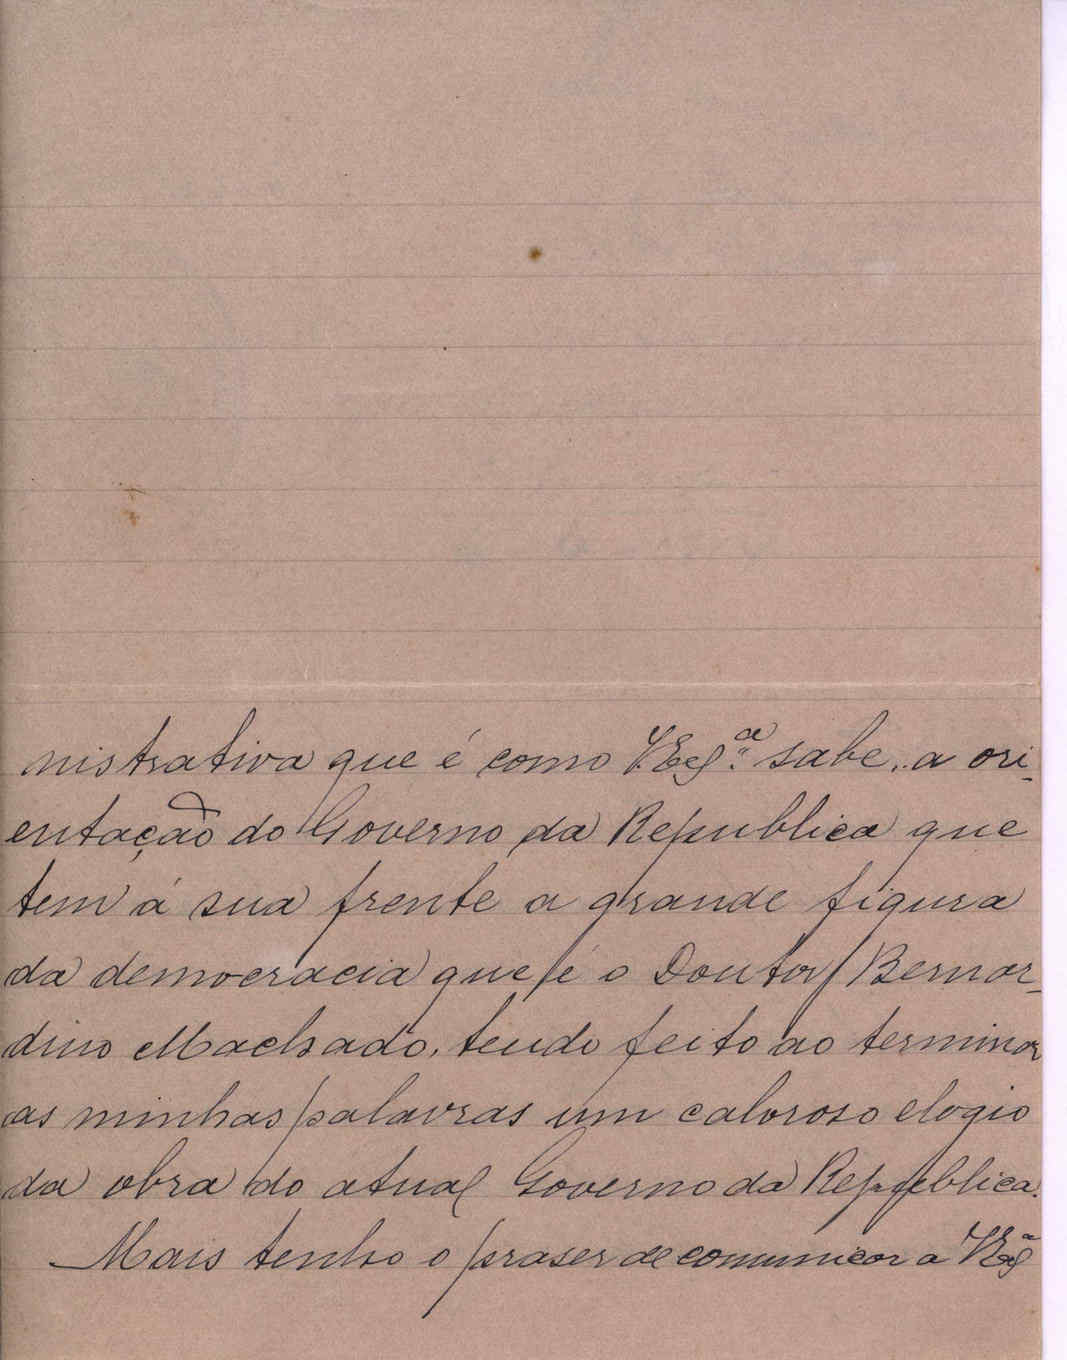 nistrativa que é como V.Exª. sabe, a ori-
entação do Governo da Republica que
tem á sua frente a grande figura
da democracia que é o Doutor Bernar-
dino Machado, tendo feito ao terminar
as minhas palavras um caloroso elogio
da obra do atual Governo da Republica.
Mais tenho o praser de comunicar a V.Exª